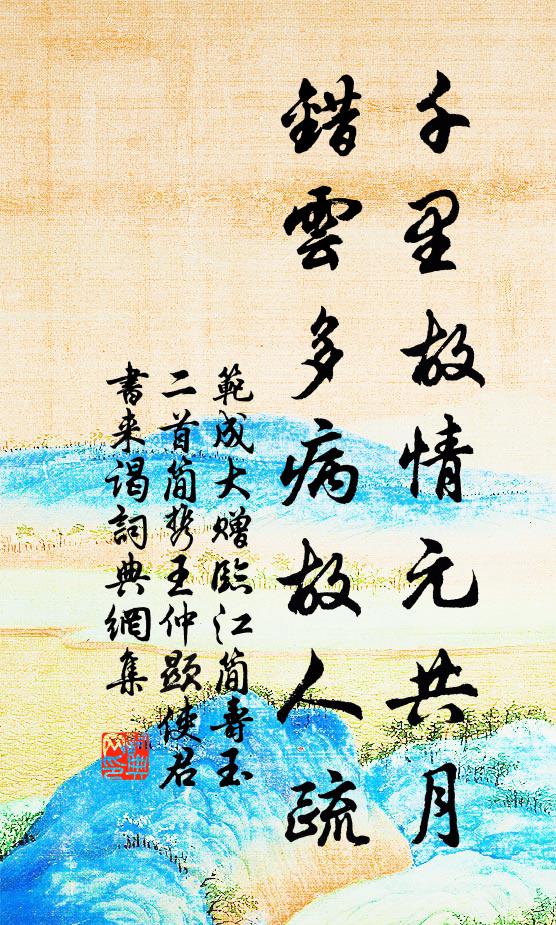 千里故情元共月
錯雲多病故人疏
範成大贈臨江簡壽玉
二首簡携王仲顯使君
書来谒詞典網集